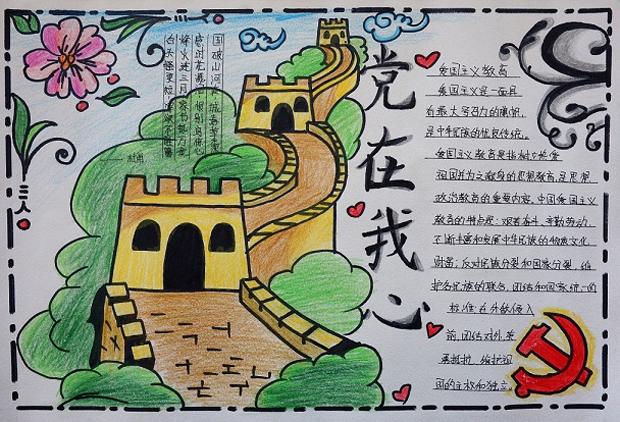 党在我心
国破山河在 城春草木深
感时花溅泪 恨别鸟惊心
烽火连三月 家书抵万金
白头搔更短 浑欲不胜簪
——杜甫
爱国主义教育
爱国主义是一面具
有最大号召力的旗帜,
是中华民族的优良传统。
爱国主义教育是指树立热爱
祖国并为之献身的思想教育,是思想
政治教育的重要内容。中国爱国主义
教育的特点是:艰苦奋斗、辛勤劳动,
不断丰富和发展中华民族的物质文化
财富;反对民族分裂和国家分裂,维
护各民族的联合、团结和国家统一的
标准;在外敌侵入
前,团结对外,英
勇抵抗,维护祖
国的主权和独立。